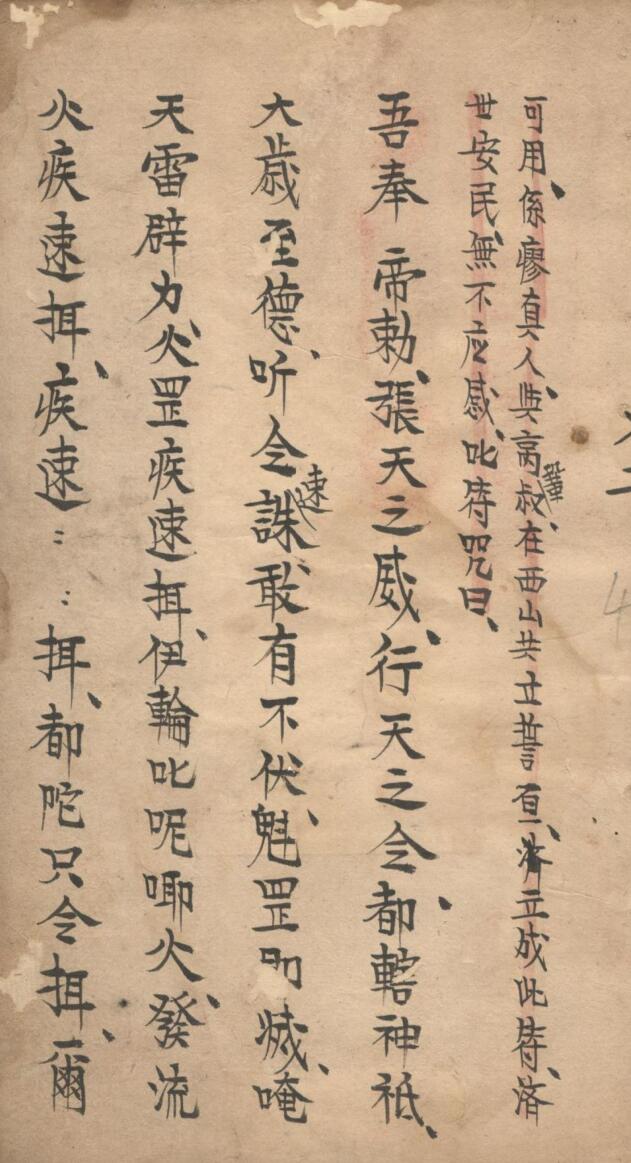 可用、係廖真人與高叔輦、在西山共立誓、立成此符、済
世安民、無不应感、叱符咒曰、
吾奉帝勅、張天之威、行天之令、都轄神祇、
大歲至德、听令速誅、敢有不伏、魁罡即滅、唵
天雷辟力火罡疾速揖、伊輪叱呢唧火發、流
火疾速揖、疾速：：揖、都陀只令揖、爾